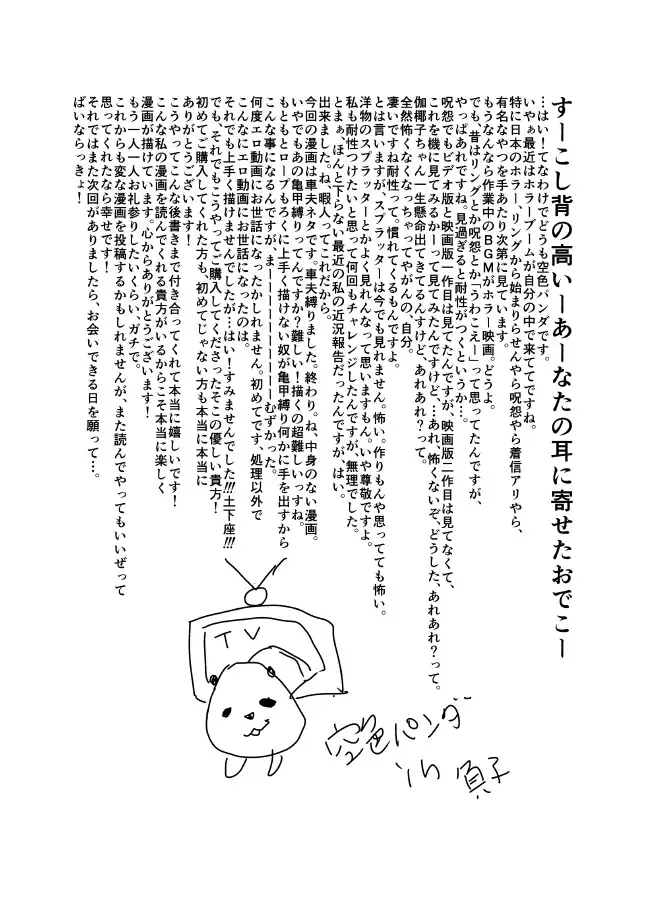 すーこし背の高いーあーなたの耳に寄せたおでこー
…はい！てなわけでどうも空色パンダです。
いやぁ最近はホラーブームが自分の中で来ててですね。
特に日本のホラー、リングから始まりらせんやら呪怨やら着信アリやら、
有名なやつを手あたり次第に見ています。
もうなんなら作業中のＢＧＭがホラー映画。どうよ。
でも、昔はリングとか呪怨とか「うわこえー」って思ってたんですが、
やっぱあれですね。見過ぎると耐性がつくというか…。
呪怨でもビデオ版と映画版一作目は見てたんですが、映画版二作目は見てなくて、
これを機に見てみるかーって見てみたんですけど…あれ、怖くないぞ、どうした、あれあれ？って。
伽椰子ちゃん一生懸命出てきてるんすけど、あれあれ？って。
全然怖くなくなっちゃってやがんの自分。
凄いですね耐性って。慣れてくるもんですよ。
とは言いますが、スプラッターは今でも見れません。怖い。作りもんや思ってても怖い。
洋物のスプラッターとかよく見れんなって思いますもん。いや尊敬ですよ。
私も耐性つけたいと思って何回もチャレンジしたんですが、無理でした。
とまぁ、ほんと下らない最近の私の近況報告だったんですが、はい。
出来ました。ね、暇人ってこれだから。
今回の漫画は車夫ネタです。車夫縛りました。終わり。ね、中身のない漫画。
いやでもあの亀甲縛りってんですか？難しい！描くの超難しいっすね。
もともとロープもろくに上手く描けない奴が亀甲縛り何かに手を出すから
こんな事になるんですが、まーーーーーーーーーーむずかった。
何度エロ動画にお世話になったかしれません。初めてです、処理以外で
こんなにエロ動画にお世話になったのは。
それでも上手く描けませんでしたが…はい！すみませんでした!!!土下座!!!
でも、それでもこうやってご購入してくださったそこの優しい貴方！
初めてご購入してくれた方も、初めてじゃない方も本当に本当に
ありがとうございます！
こうやってこんな後書きまで付き合ってくれて本当に嬉しいです！
こんな私の漫画を読んでくれる貴方がいるからこそ本当に楽しく
漫画が描けています。心からありがとうございます！
もう一人一人お礼参りしたいくらい、ガチで。
これからも変な漫画を投稿するかもしれませんが、また読んでやってもいいぜって
思ってくれたなら幸せです！
それではまた次回がありましたら、お会いできる日を願って…。
ばいならっきょ！
TV
空色パンダ
in 貞子